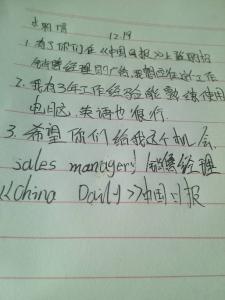 求职信
12.19
1.看了你们在《中国日报》上登的招
销售经理的广告,我想应征这个工作
2.我有3年工作经验能熟练使用
电脑,英语也很行.
3.希望你们给我这个机会.
sales managers 销售经理
《China Daily》中国日报